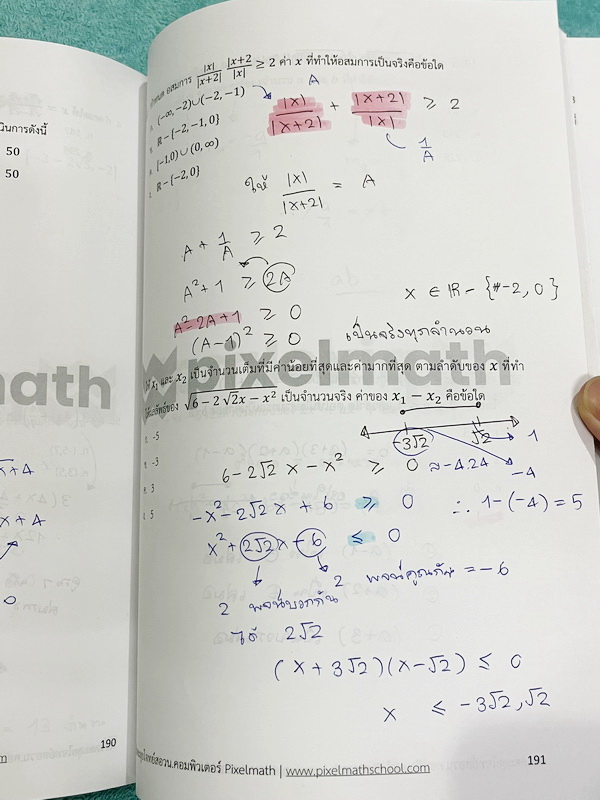 วินการดังนี้
50
50
x+4
x+4
0
190
กำหนด อสมการ |x|/|x+2| |x+2|/|x| ≥ 2 ค่า x ที่ทำให้อสมการเป็นจริงคือข้อใด
(-∞, -2)∪(-2, -1)
ℝ-{-2,-1,0}
[-1,0)∪(0,∞)
ℝ-{-2,0}
A
|x|/|x+2| + |x+2|/|x| ≥ 2
1/A
ให้ |x|/|x+2| = A
A + 1/A ≥ 2
A²+1 ≥ 2A
x ∈ ℝ - {-2, 0}
A²-2A+1 ≥ 0
(A-1)² ≥ 0
เป็นจริงทุกจำนวน
math
pixelmath
x₁ และ x₂ เป็นจำนวนเต็มที่มีค่าน้อยที่สุดและค่ามากที่สุด ตามลำดับของ x ที่ทำ
ให้ผลลัพธ์ของ √(6-2√2x-x²) เป็นจำนวนจริง ค่าของ x₁ - x₂ คือข้อใด
-5
-3
3
5
-3√2 √2 1
6-2√2x-x² ≥ 0 ≈-4.24 -4
-x²-2√2x+6 ≥ 0 ∴ 1-(-4)=5
x²+2√2x-6 ≤ 0
2 พจน์คูณกัน = -6
2 พจน์บวกกัน
ได้ 2√2
(x+3√2)(x-√2) ≤ 0
x ≤ -3√2, √2
โจทย์สอวน.คอมพิวเตอร์ Pixelmath | www.pixelmathschool.com
191